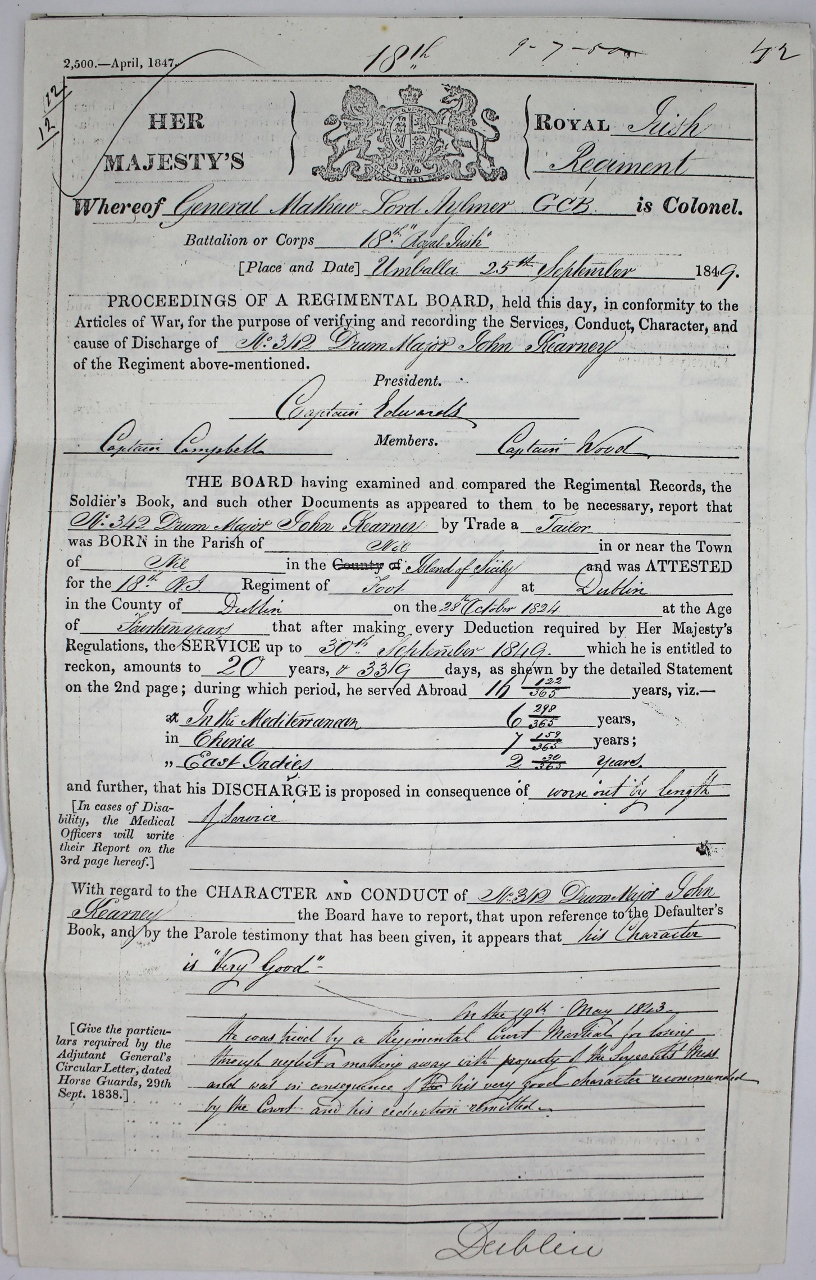 2,500.—April, 1847.
18th
9-7-50
42
12
12
HER
MAJESTY'S
ROYAL Irish
Regiment
Whereof General Mathew Lord Aylmer GCB is Colonel.
Battalion or Corps 18th "Royal Irish"
[Place and Date] Umballa 25th September 1849.
PROCEEDINGS OF A REGIMENTAL BOARD, held this day, in conformity to the
Articles of War, for the purpose of verifying and recording the Services, Conduct, Character, and
cause of Discharge of No. 342 Drum Major John Kearney
of the Regiment above-mentioned.
President.
Captain Edwards
Captain Campbell Members. Captain Wood
THE BOARD having examined and compared the Regimental Records, the
Soldier's Book, and such other Documents as appeared to them to be necessary, report that
No. 342 Drum Major John Kearney by Trade a Tailor
was BORN in the Parish of Nil in or near the Town
of Nil in the County of Island of Sicily and was ATTESTED
for the 18th R.I. Regiment of Foot at Dublin
in the County of Dublin on the 28th October 1824 at the Age
of Fourteen years that after making every Deduction required by Her Majesty's
Regulations, the SERVICE up to 30th September 1849. which he is entitled to
reckon, amounts to 20 years, & 339 days, as shewn by the detailed Statement
on the 2nd page; during which period, he served Abroad 16 122/365 years, viz.—
In the Mediterranean 6 298/365 years,
in China 7 159/365 years;
„ East Indies 2 30/365 years.
and further, that his DISCHARGE is proposed in consequence of worn out by length
of Service
[In cases of Disa-
bility, the Medical
Officers will write
their Report on the
3rd page hereof.]
With regard to the CHARACTER AND CONDUCT of No. 342 Drum Major John
Kearney the Board have to report, that upon reference to the Defaulter's
Book, and by the Parole testimony that has been given, it appears that his Character
is "Very Good"-
[Give the particu-
lars required by the
Adjutant General's
Circular Letter, dated
Horse Guards, 29th
Sept. 1838.]
On the 19th May 1843
he was tried by a Regimental Court Martial for losing
through neglect or making away with property of the Sergeants Mess
and was in consequence of his very good character recommended
by the Court and his reduction remitted.
Dublin